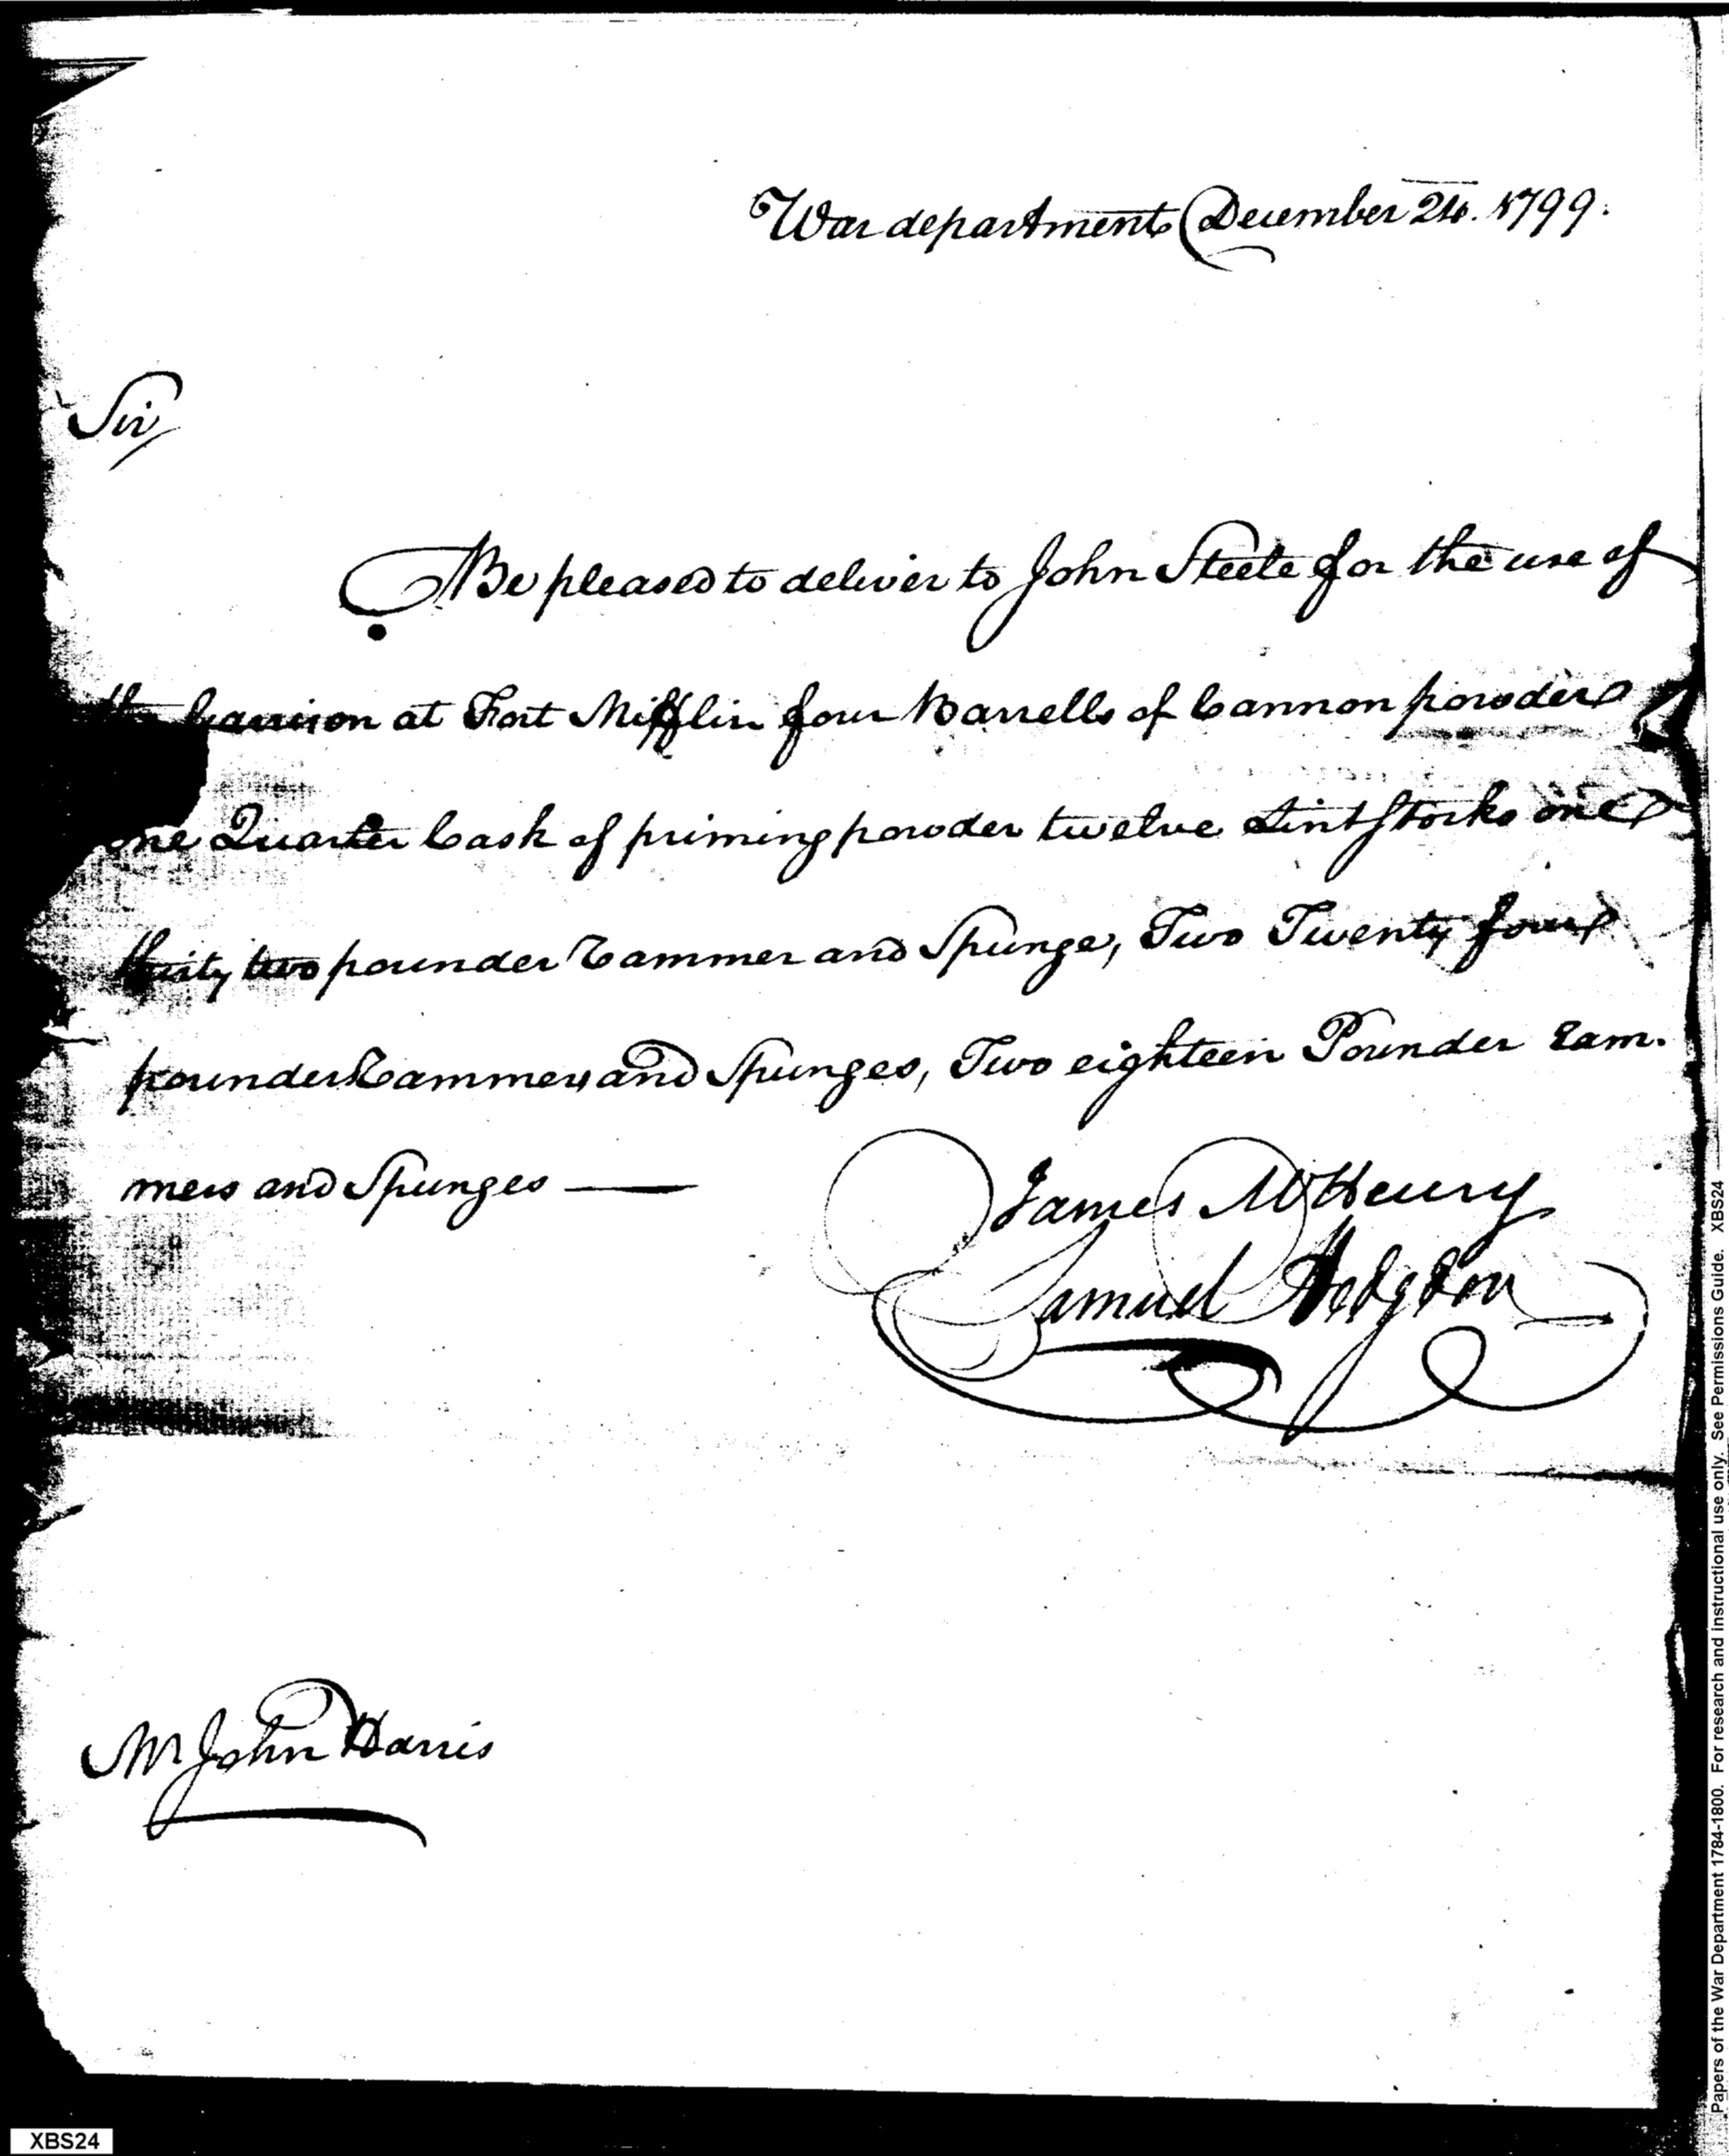 War department December 24. 1799.
Sir
Be pleased to deliver to John Steele for the use of
the Garrison at Fort Mifflin four Barrells of Cannon powder
one Quarter Cask of priming powder twelve Lint Stocks one
thirty two pounder Rammer and Spunge, Two Twenty four
pounder Rammers and Spunges, Two eighteen Pounder Ram.
mers and Spunges
James McHenry
Samuel Hodgdon
Mr John Harris
XBS24
Papers of the War Department 1784-1800. For research and instructional use only. See Permissions Guide. XBS24